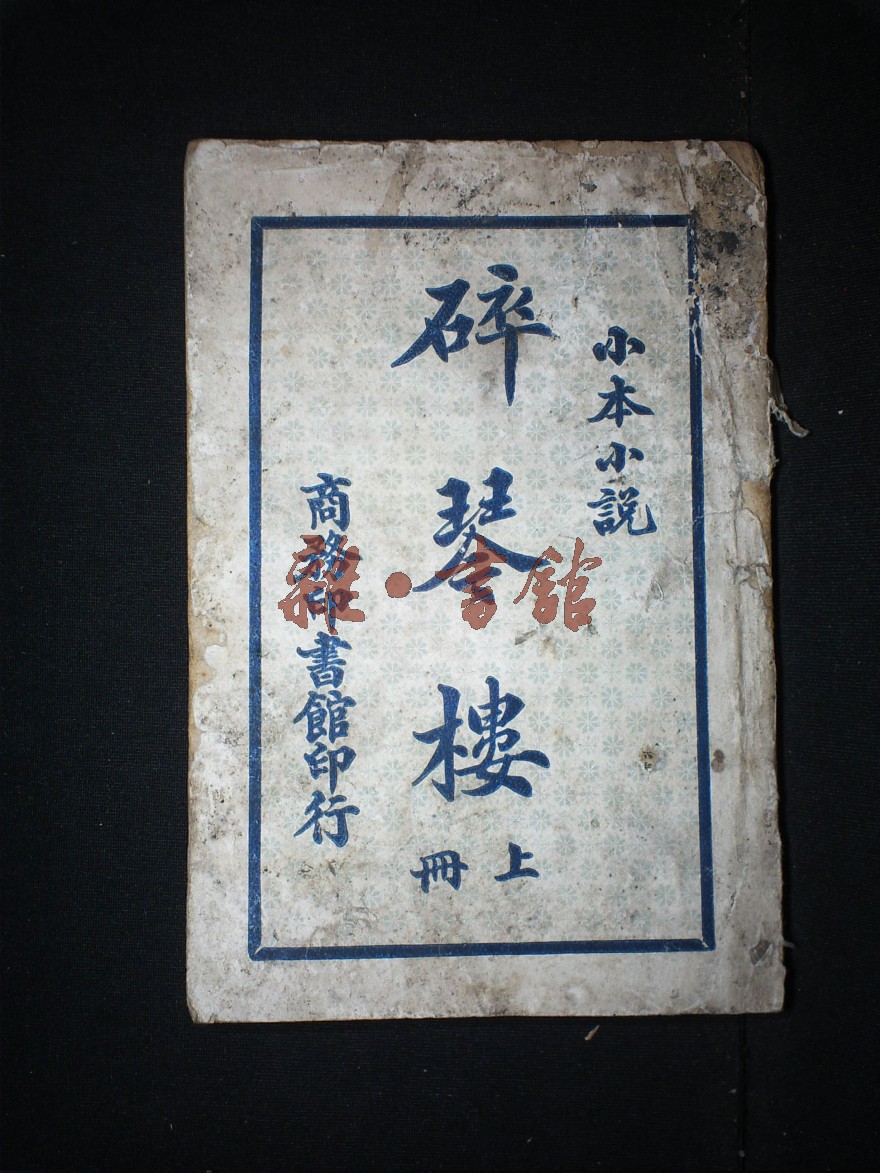 小本小説
碎琴樓
上冊
商務印書館印行
雜·書館